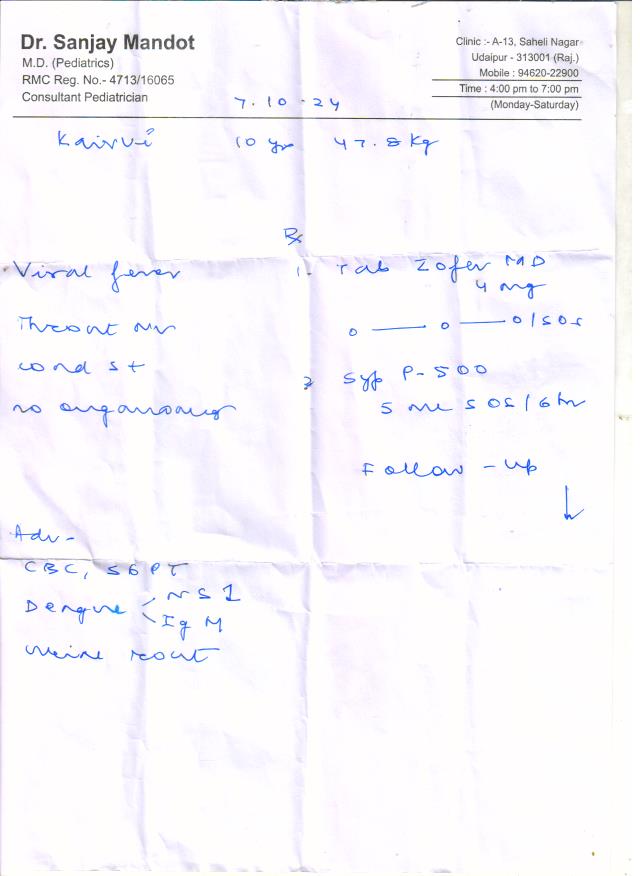 Dr. Sanjay Mandot
M.D. (Pediatrics)
RMC Reg. No.- 4713/16065
Consultant Pediatrician
Clinic :- A-13, Saheli Nagar
Udaipur - 313001 (Raj.)
Mobile : 94620-22900
Time : 4:00 pm to 7:00 pm
(Monday-Saturday)
7.10.24
Kairvi 10 yr 47.8 kg
Rx
Viral fever
Throat
cond st
no
1. Tab Zofer MD
4 mg
0 — 0 — 0/sos
2 Syp P-500
5 ml SOS/6 hr
Follow-up
↓
Adv-
CBC, SGPT
Dengue NS1
IgM
Urine rout